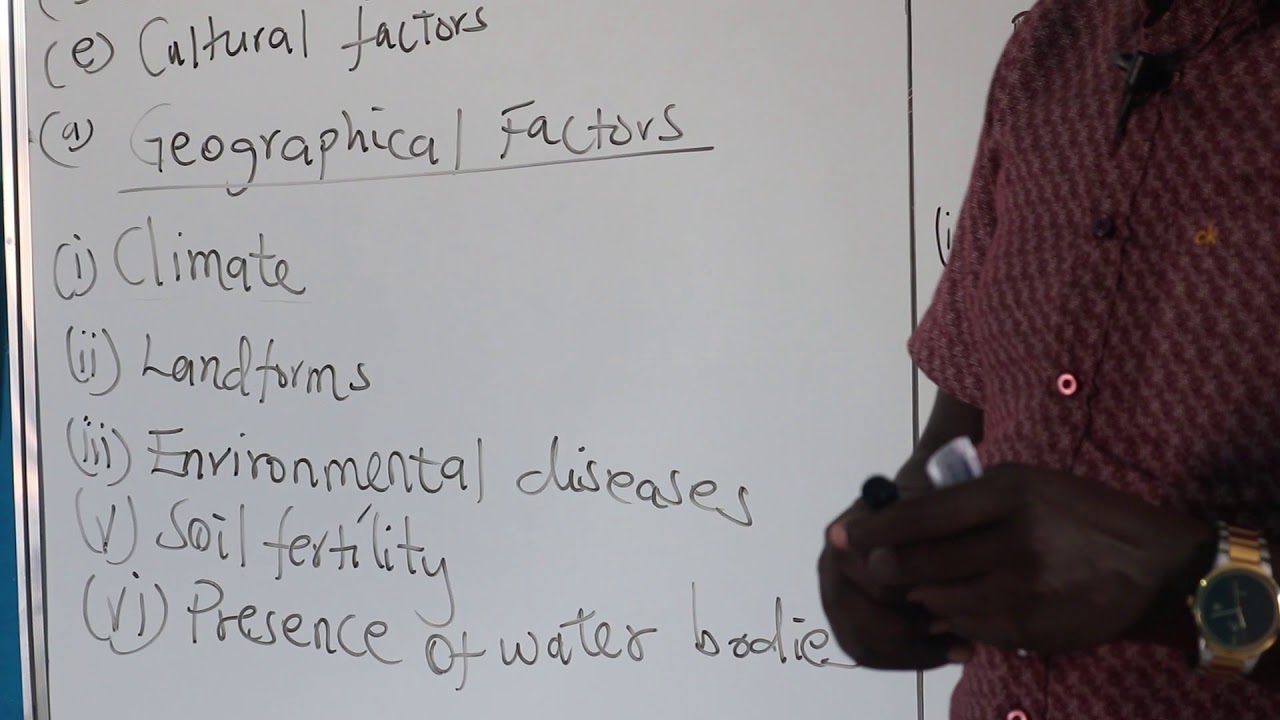 (e) Cultural factors
(a) Geographical Factors
(i) Climate
(ii) Landforms
(iii) Environmental diseases
(v) Soil fertility
(vi) Presence of water bodies
(i
ck